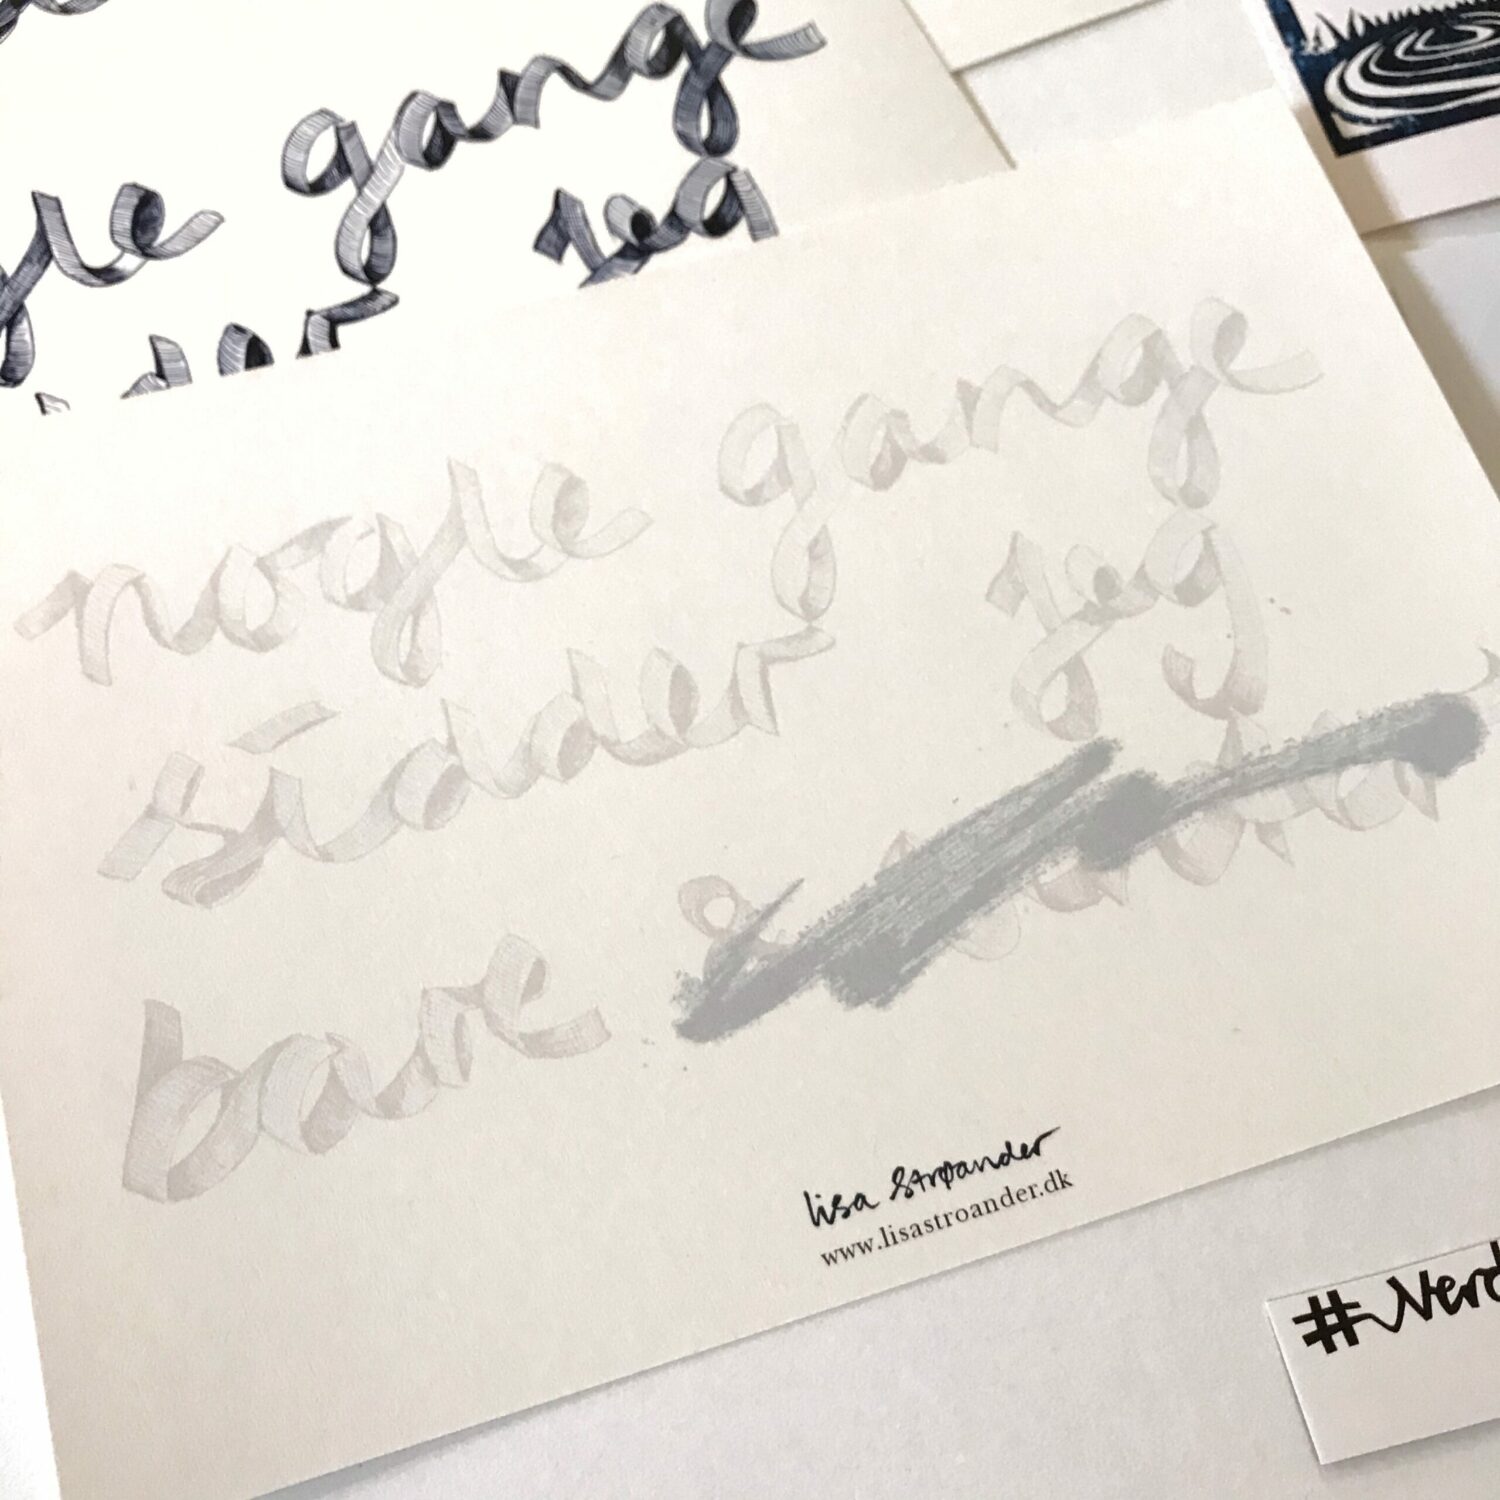 gle gange
der jeg
nogle gange
sidder jeg
bare &
lisa Strøander
www.lisastroander.dk
#Nerd